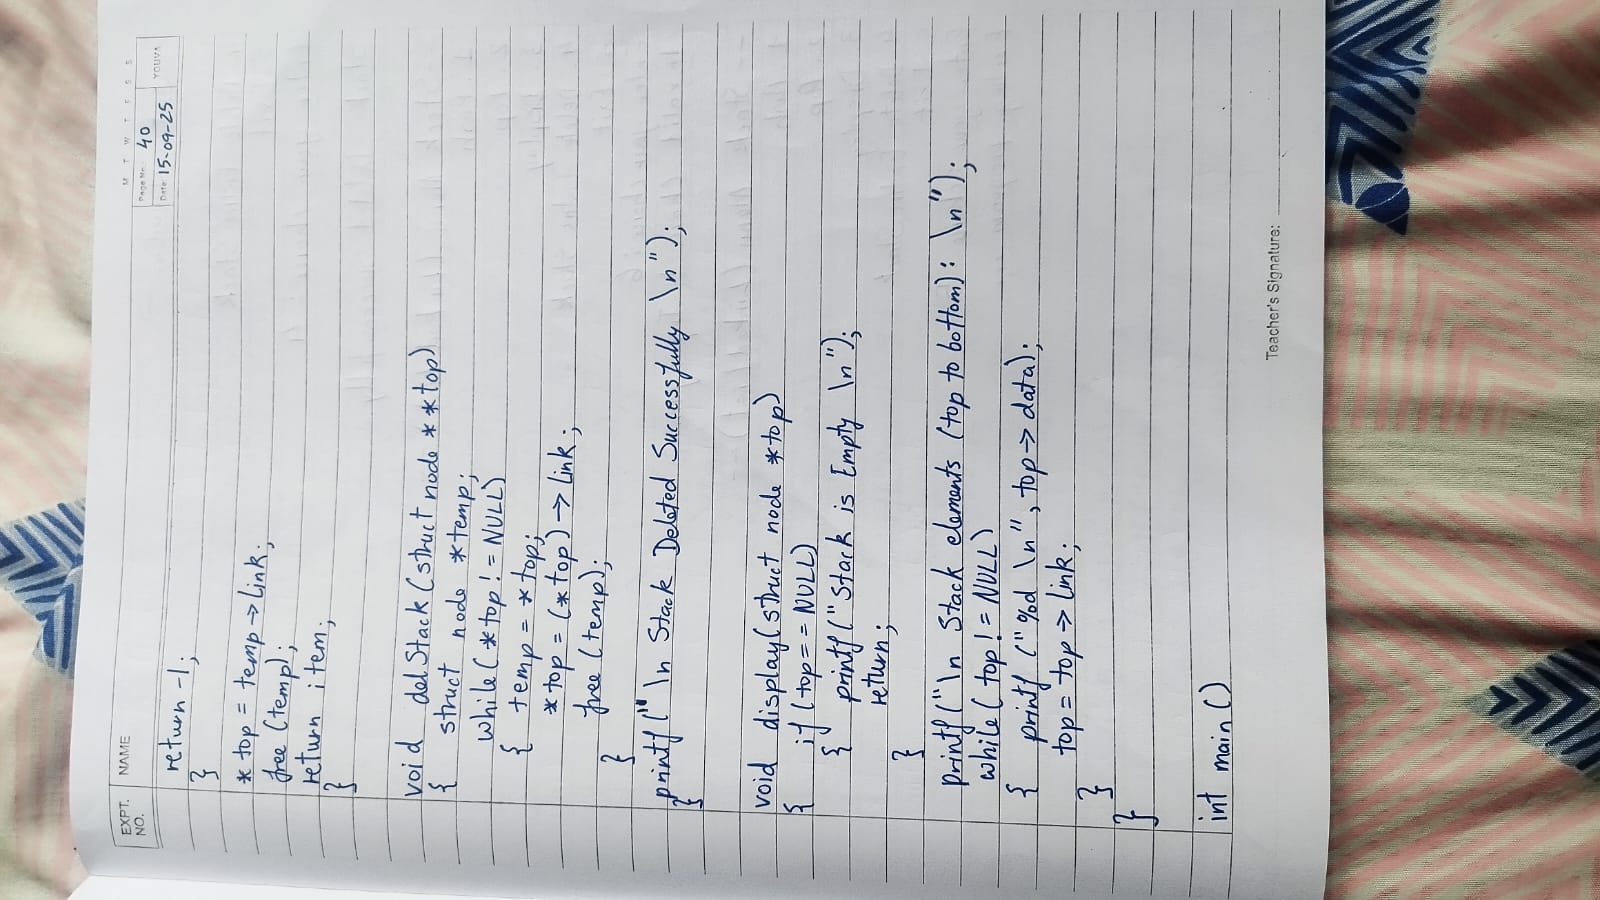 EXPT. NO.
NAME
M T W T F S S
Page No.: 40
Date: 15-09-25
YOUVA
return -1;
}
* top = temp → link;
free (temp);
return item;
}
void delStack (struct node * * top)
{ struct node * temp;
while ( * top ! = NULL)
{ temp = * top;
* top = (* top) → link;
free (temp);
}
printf (" \n Stack Deleted Successfully \n");
}
void display (struct node * top)
{ if (top = = NULL)
{ printf ("Stack is Empty \n");
return;
}
printf ("\n Stack elements (top to bottom) : \n");
while ( top ! = NULL)
{ printf ("%d \n", top → data);
top = top → link;
}
}
int main ()
Teacher's Signature: